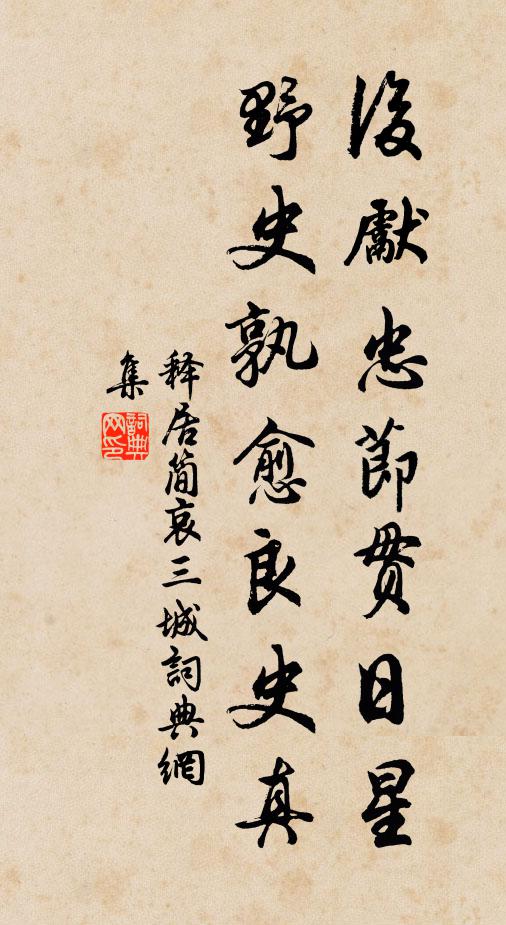 後獻忠節貫日星
野史孰愈良史真
释居简哀三城詞典網
集
詞典
网印